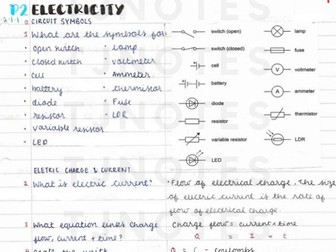 P2 ELECTRICITY
2.1.1 CIRCUIT SYMBOLS
1 What are the symbols for
• open switch
• closed switch
• cell
• battery
• diode
• resistor
• variable resistor
• LED
• lamp
• voltmeter
• Ammeter
• thermistor
• Fuse
• LDR
switch (open)
switch (closed)
cell
battery
diode
resistor
variable resistor
LED
lamp
fuse
V voltmeter
A ammeter
thermistor
LDR
ELETRIC CHARGE & CURRENT
2 What is electric current?
• Flow of electrical charge. The size
of electric current is the rate of
flow of electrical charge
3 What equation links charge
flow, current & time?
Charge flow = current × time
Q = I ×